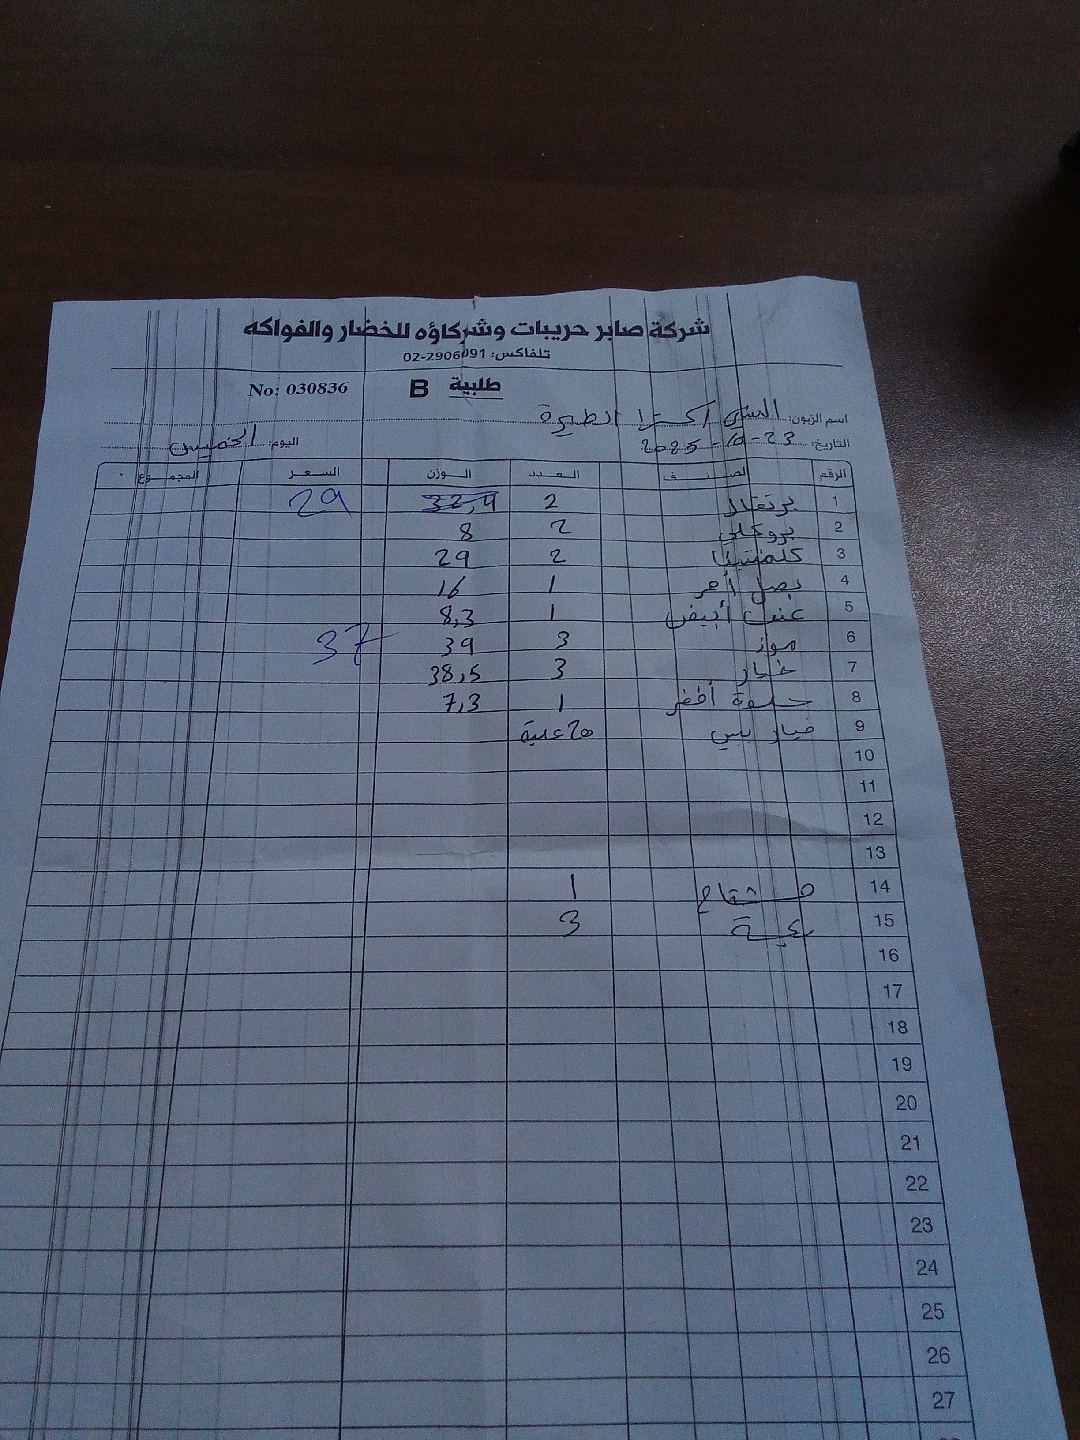 شركة صابر حريبات وشركاؤه للخضار والفواكه
تلفاكس: 02-2906091
طلبية B No: 030836
اسم الزبون: السني اكسترا الطيرة
التاريخ: 23-10-2025 اليوم: الخميس
الرقم الصنف العدد الوزن السعر المجموع
1 برتقال 2 32,4 29
2 بروكلي 2 8
3 كلمنتينا 2 29
4 بصل أحمر 1 16
5 عنب أبيض 1 8,3
6 موز 3 39 37
7 خيار 3 38,5
8 أخضر 1 7,3
9 خيار بيبي علبة
10
11
12
13
14 1
15 3
16
17
18
19
20
21
22
23
24
25
26
27